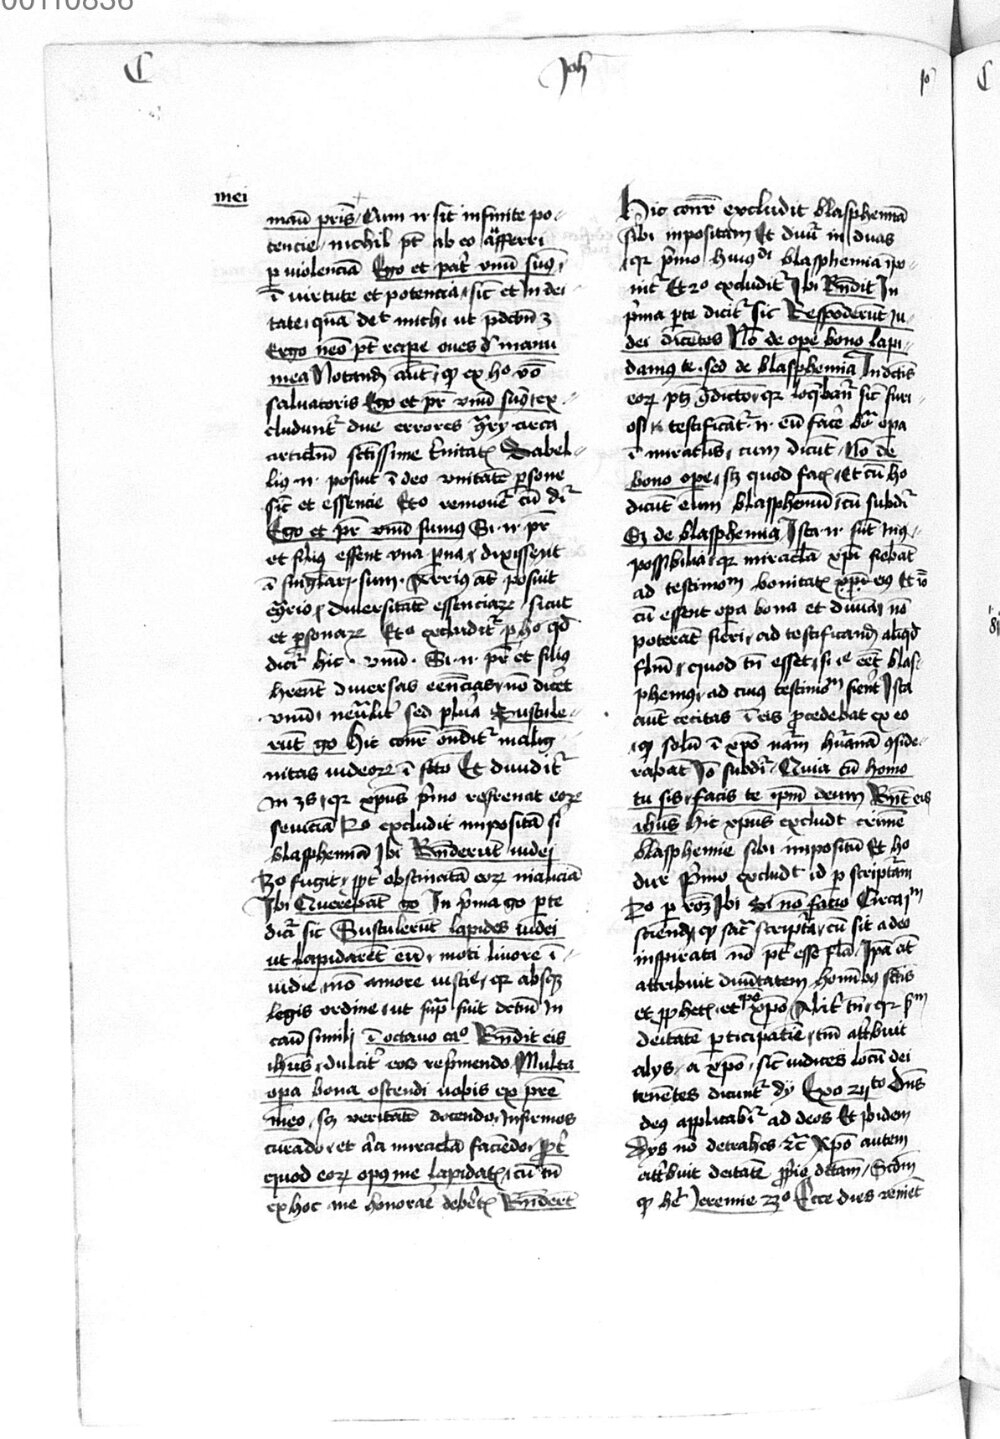 00110836
C Joh
mei
manu pris / Cum n̄ sit infinite po-
tencie / nichil pt̄ ab eo afferri
p violenciā Ego et pat̄ vnū sum9
ī virtute et potencia / sic̄ et in dei-
tate / quā det michi ut
Ergo nemo pt̄ rape oues d̄ manu
mea Notand aut̄ / q ex ho vo
saluatoris Ego et pr̄ vnū sum9 ex-
cludunt̄ due errores circa
articlm̄ sctissime t̄nitatꝭ Sabel-
li9 n̄ posuit ī deo vnitatē ꝑsone
sic̄ et essencie Et o remouet̄ cū dr̄
Ego et pr̄ vnū sumus Si n̄ pr̄
et fili9 essent vna ꝑsona / dixissent
ī singlari / sum Arrius at̄ posuit
diuersitatē essenciarꝫ sicut
et ꝑsonarꝫ Et o excludit̄ ꝑ ho qd̄
dicit̄ hic vnū Si n̄ pr̄ et fili9
hr̄ent diuersas eēncias / nō dicēt
vnū / neut̄lit̄ sed plura Sustule-
rūt go Hic con̄r ōndit̄ malig-
nitas iudeorꝫ ī fcto Et diuidit̄
in 3s / qr xpus p̄mo refrenat eorꝫ
seuiciā 2o excludit impositā s̄i
blasphemiā Ibi Rn̄derūt iudei
3o fugit / ppt̄ obstinatā eorꝫ maliciā
Ibi Querebāt go In p̄ma go ꝑte
dicit̄ sic Sustulerūt lapides iudei
ut lapidarēt eū / moti liuore ī-
uidie / nō amore iusticie / qr absqꝫ
legis ordine / ut supͣ fuit dctū in
cāu simili ī octauo cao Rn̄dit eis
ihus / dulcit̄ eos rep̄mendo Multa
opa bona ostendi uobis ex pr̄e
meo / sꝫ veritatē docendo / infirmos
curādo / et ac̄ miraclā faciēdo / ppt̄
quod eorꝫ opus me lapidatꝭ / cū tn̄
ex hoc me honorare debetꝭ Rn̄derūt
Hic con̄r excludit blasphemiā
sibi inpositam Et diuit̄ in duas
qr p̄mo hui9di blasphemia īpo-
nit̄ Et 2o excludit̄ Ibi Rn̄dit In
p̄ma ꝑte dicit̄ sic Respōderūt iu-
dei dicētes Nō de ope bono lapi-
dam9 te sed de blasphemia In dctis
eorꝫ ptꝫ / qr loqbant̄ sic̄ furi-
osi testificāt̄ n̄ eū facē bo opa
ī miraclis / cum dicūt Nō de
bono ope / sꝫ quod facꝭ / Et cū ho
dicūt eum blasphemū / cū subdit̄
Sꝫ de blasphemia Ista n̄ sūt in9
possibilia / qr miraclā xpi fiebāt
ad testimom bonitatꝭ xpi eius Et iō
cū essent opa bona et diuina / nō
poterāt fieri / ad testificand aliqd
flm̄ / quod tn̄ esset / si ie eēt blas-
phemus / ad cui9 testimom fierēt Ista
aut̄ cecitas ī eis p̄cedebat ex eo
q solū ī xpo nam hūanā 9side-
rabāt Iō subdit̄ Quia cū homo
tu sis / facis te ipm̄ deum Rn̄t eis
ihus Hic xpus excludt crimē
blasphemie sibi impositū Et ho
dupͬ p̄mo excludt id p scriptam
2o p rōꝫ Ibi Si nō facio Circa im
sciend q sac̄ scriptͣ / cū sit a deo
inspirata nō pt̄ esse flā / Ipa at̄
attribuit diuītatem homībus sctis
et pphetꝭ / et xpo Alit̄ tn̄ / qr
deitatē ꝑticipatie / tm̄ attribuit
alys / a xpo / sic̄ iudices locū dei
tenētes dicunt̄ dy Exo 22to Dns
deus applicabit̄ ad deos Et ibidem
Dys nō detrahes ⁊c̄ Xpo autem
attribuit deitatē ppie dctam / Scdm
q hr̄ Ieremie 23o Ecce dies veniēt